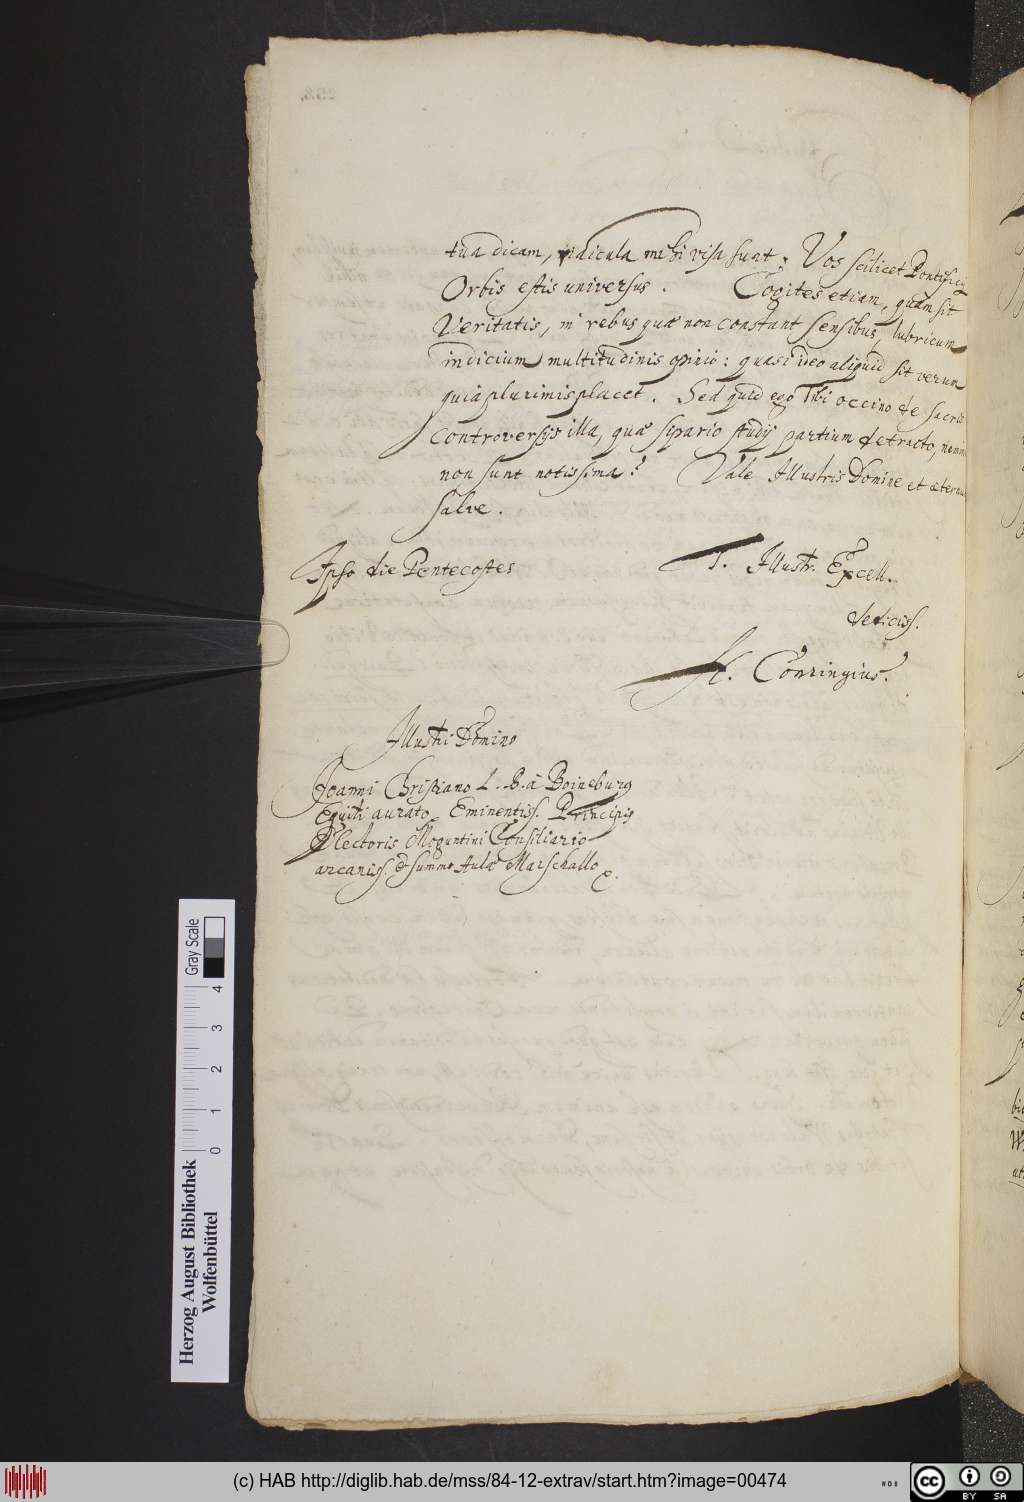 tua dicam, ridicula mihi visa sunt. Vos scilicet Pontificij
Orbis estis universus. Cogites etiam, quam sit
Veritatis, in rebus quæ non constant sensibus, lubricum
indicium multitudinis opinio: quasi ideo aliquid sit verum
quia plurimis placet. Sed quid ego Tibi occino de sacris
controversijs illa, quæ sipario studij partium detracto, nemini
non sunt notissima? Vale Illustris Domine et æternum
salve.
Ipso die Pentecostes
T. Illustr. Excell.
deticiss.
H. Conringius.
Illustri Domino
Joanni Christiano L. B. à Boineburg
Equiti aurato, Eminentiss. Principis
Electoris Moguntini Consiliario
arcaniss. & summo Aulæ Marschallo
Gray Scale
0 1 2 3 4
Herzog August Bibliothek
Wolfenbüttel
(c) HAB http://diglib.hab.de/mss/84-12-extrav/start.htm?image=00474
WDB
cc BY SA